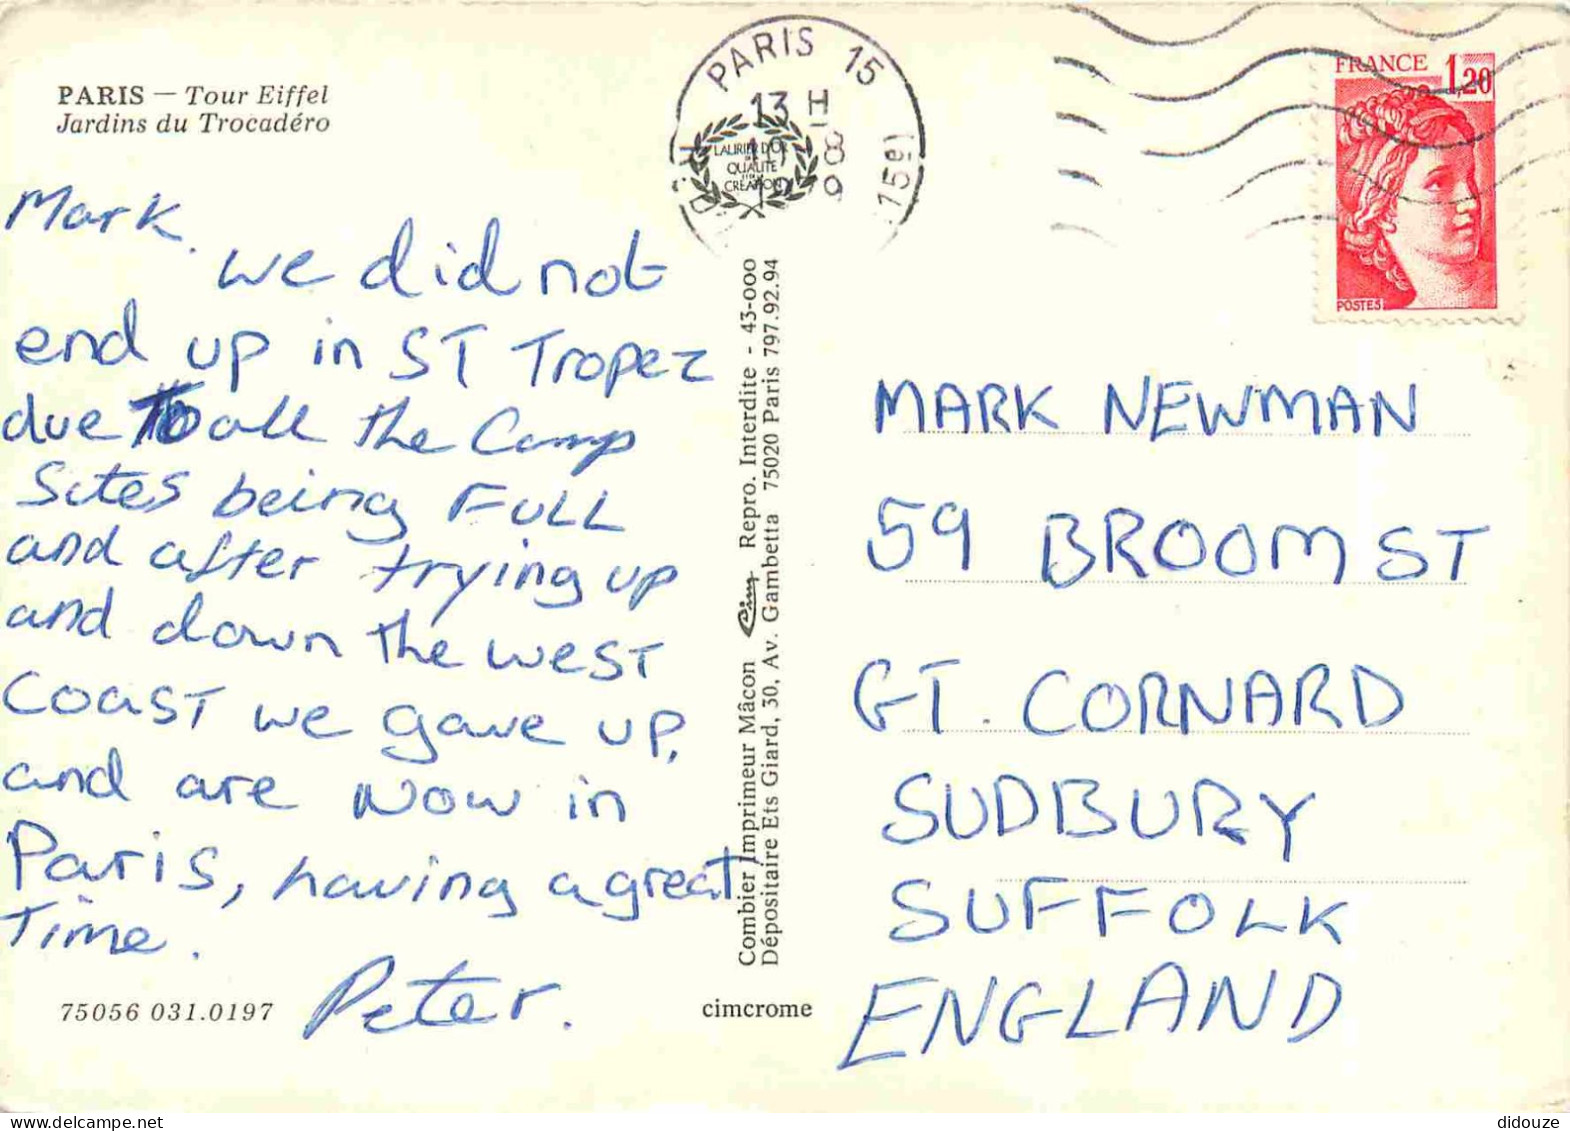 PARIS — Tour Eiffel
Jardins du Trocadéro
Mark.
we did not
end up in ST Tropez
due To all the Camp
Sites being FULL
and after trying up
and down the west
COAST we gave up,
and are Now in
Paris, having a great
Time.
Peter.
75056 031.0197
cimcrome
Combier Imprimeur Mâcon Cim Repro. Interdite - 43-000
Dépositaire Ets Giard, 30, Av. Gambetta 75020 Paris 797.92.94
PARIS 15
13 H
8
LAURIER D'OR
QUALITÉ
CRÉATION
FRANCE 1,20
POSTES
MARK NEWMAN
59 BROOM ST
GT. CORNARD
SUDBURY
SUFFOLK
ENGLAND
didouze